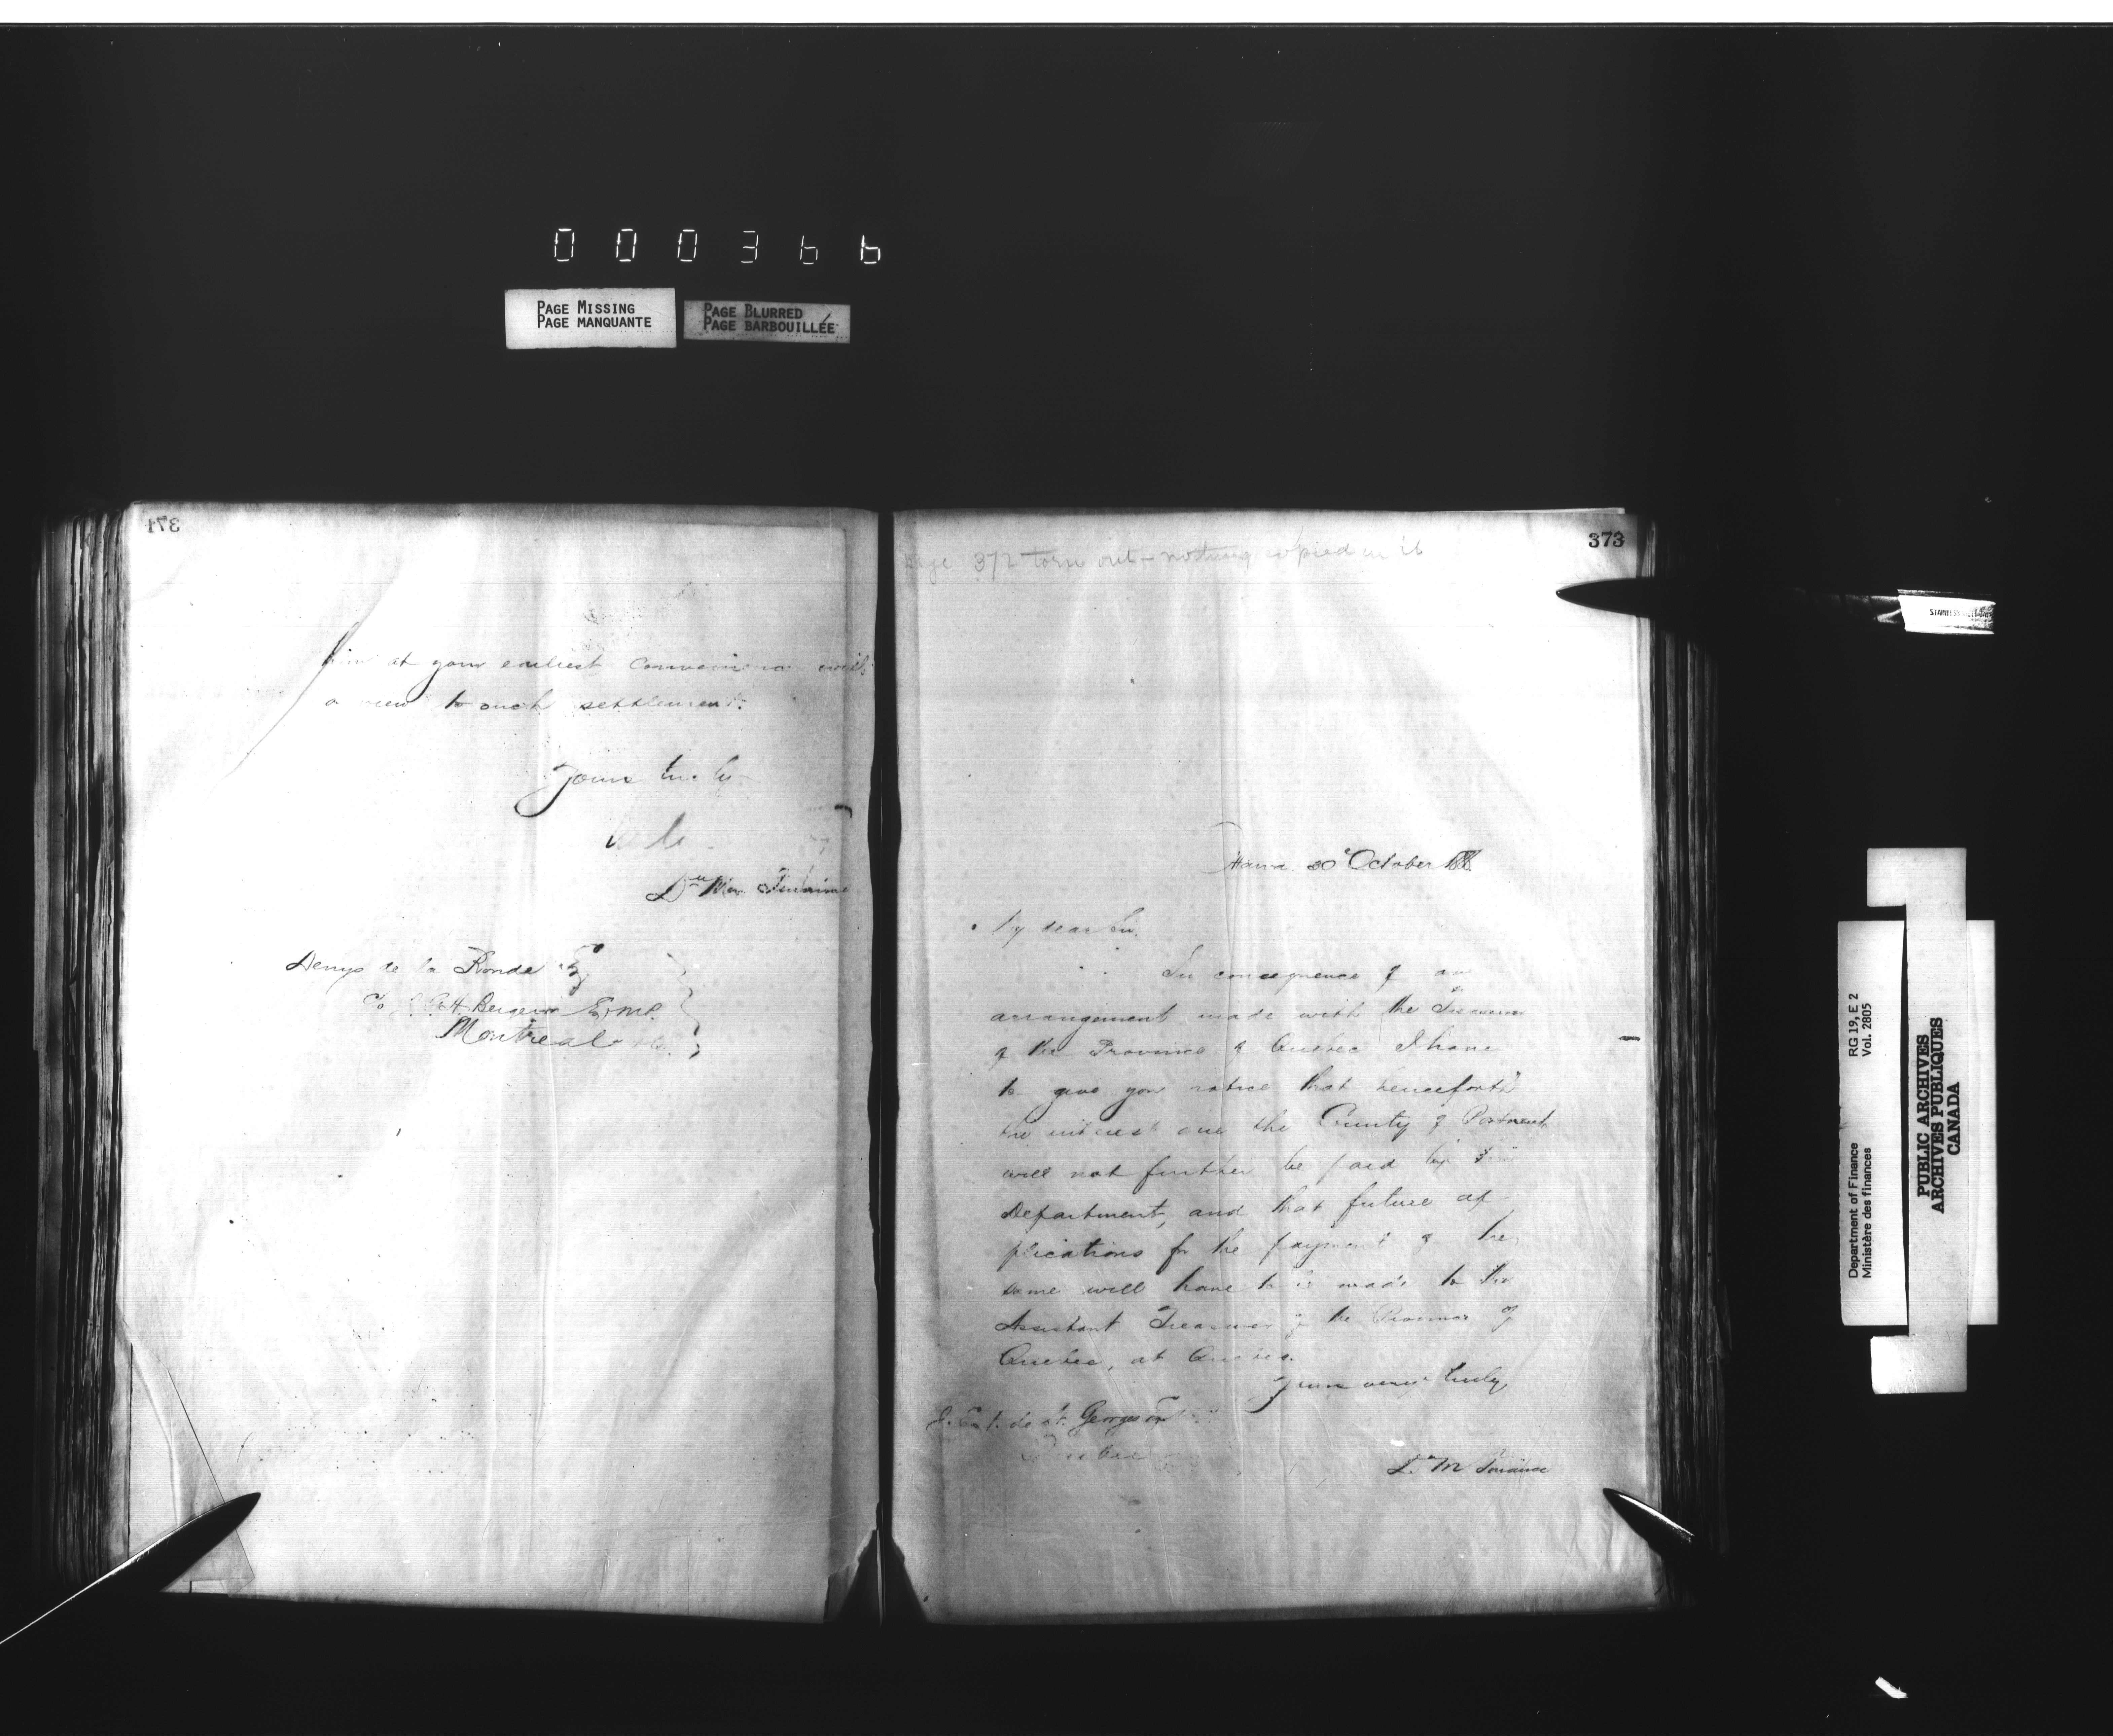 000366
PAGE MISSING
PAGE MANQUANTE
PAGE BLURRED
PAGE BARBOUILLÉE
371
him at your earliest convenience with
a view to such settlement.
Yours truly
Dy Min Finance
Denys de la Ronde Esq
c/o J. G. H. Bergeron Esq M.P.
Montreal
373
Page 372 torn out - nothing copied in it
Ottawa 30 October
My dear Sir.
In consequence of an
arrangement made with the Treasurer
of the Province of Quebec I have
to give you notice that henceforth
the interest due the County of Portneuf
will not further be paid by this
Department, and that future ap
plications for the payment of the
same will have to be made to the
Assistant Treasurer of the Province of
Quebec, at Quebec.
Yours very truly
de St. Georges
Quebec
D. M Finance
RG 19, E 2
Vol. 2805
Department of Finance
Ministère des finances
PUBLIC ARCHIVES
ARCHIVES PUBLIQUES
CANADA